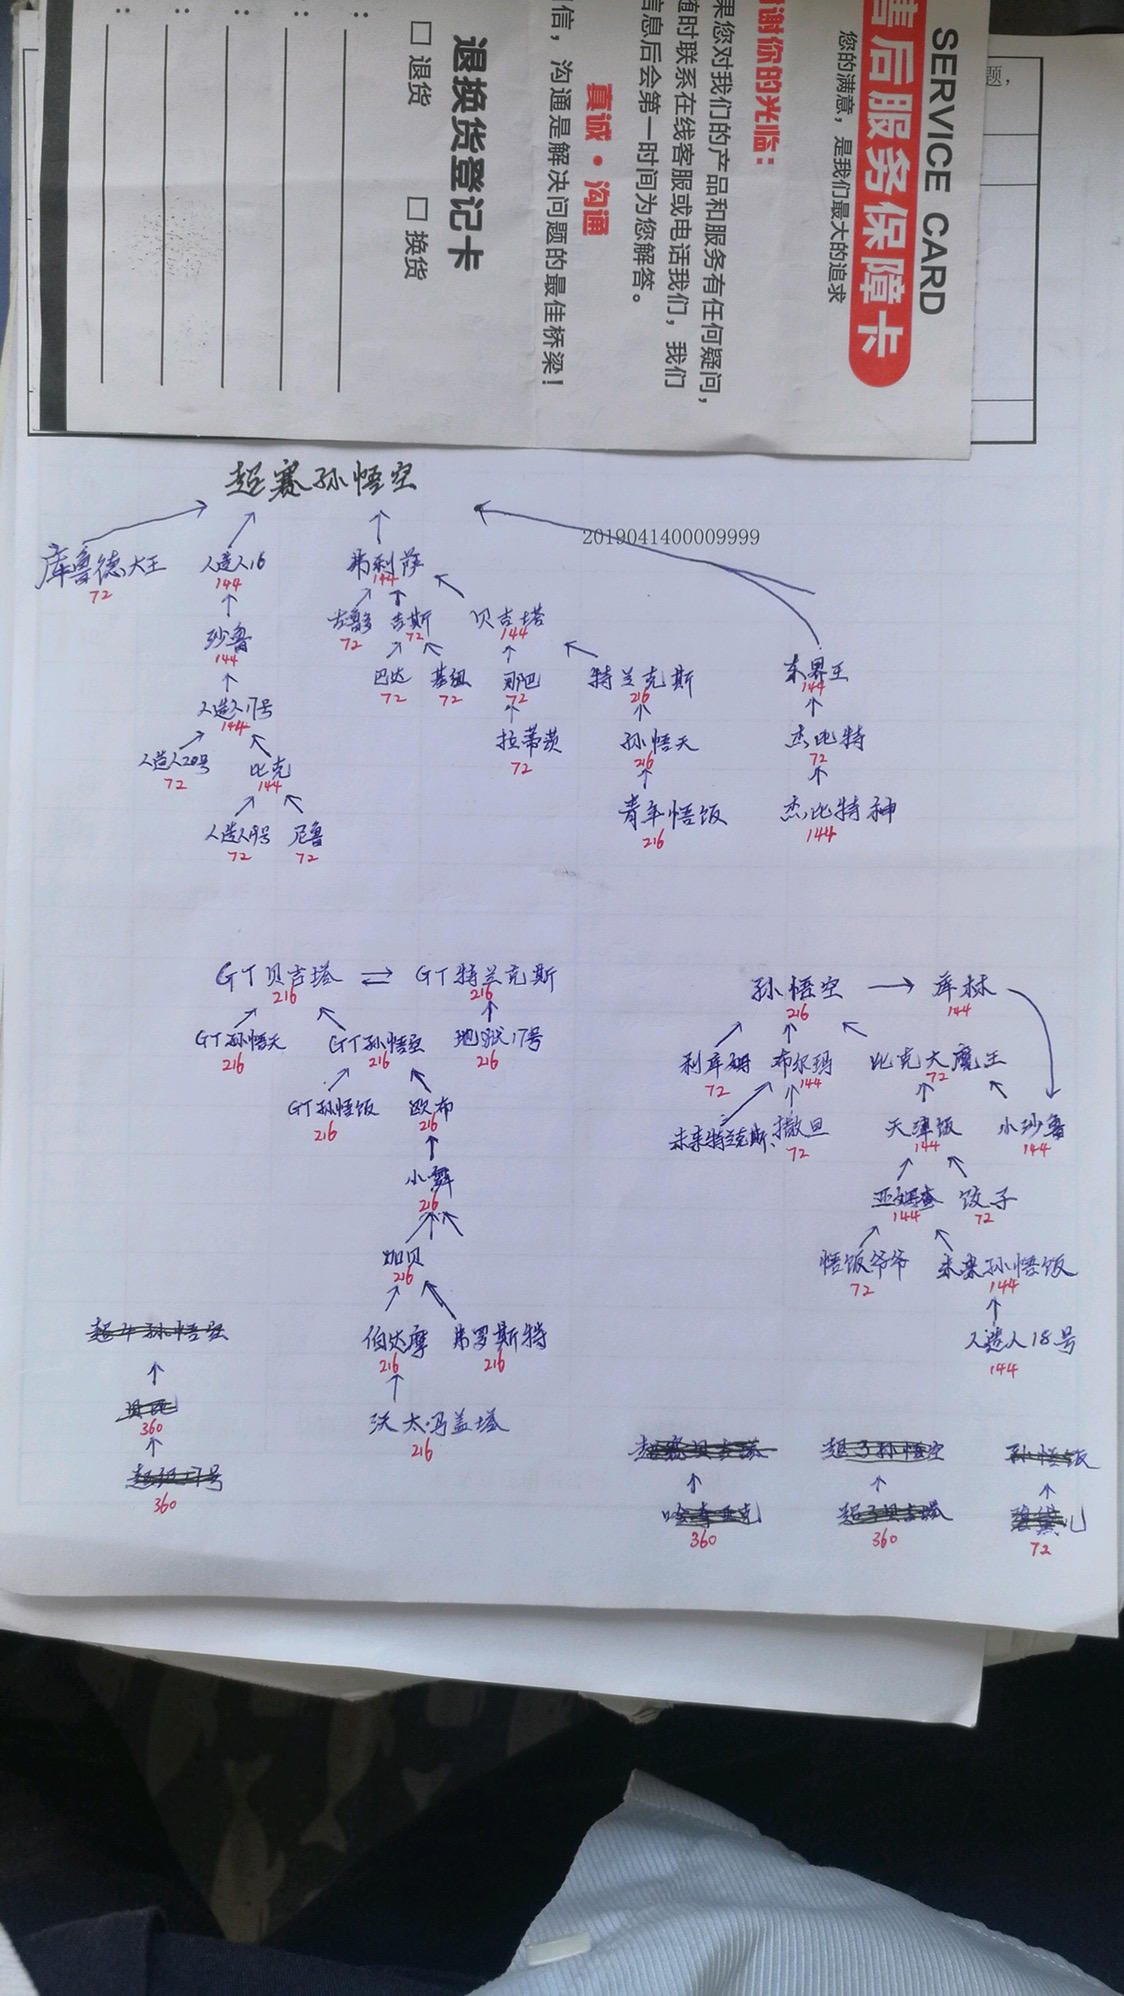 SERVICE CARD
售后服务保障卡
您的满意，是我们最大的追求
谢你的光临：
果您对我们的产品和服务有任何疑问，
随时联系在线客服或电话我们，我们
信息后会第一时间为您解答。
真诚·沟通
信，沟通是解决问题的最佳桥梁！
退换货登记卡
□ 退货 □ 换货
题，
超赛孙悟空
2019041400009999
库鲁德大王 人造人16 弗利萨
72 144 144
古鲁多 吉斯 贝吉塔
72 72 144
沙鲁
144
巴达 基纽 那巴 特兰克斯 东界王
72 72 72 216 144
人造人17号
144
拉蒂茨 孙悟天 杰比特
72 216 72
人造人20号 比克
72 144
青年悟饭 杰比特神
216 144
人造人19号 尼鲁
72 72
GT贝吉塔 GT特兰克斯
216 216
GT孙悟天 GT孙悟空 地狱17号
216 216 216
GT孙悟饭 欧布
216 216
小舞
216
加贝
216
伯达摩 弗罗斯特
216 216
沃太冯盖塔
216
孙悟空 库林
216 144
利库姆 布尔玛 比克大魔王
72 144 72
未来特兰克斯 撒旦 天津饭 小沙鲁
72 144 144
亚姆查 饺子
144 72
悟饭爷爷 未来孙悟饭
72 144
人造人18号
144
超4孙悟空
360
超级17号
360
超赛贝吉塔 超3孙悟空 孙悟饭
超3贝吉塔
360 360 72